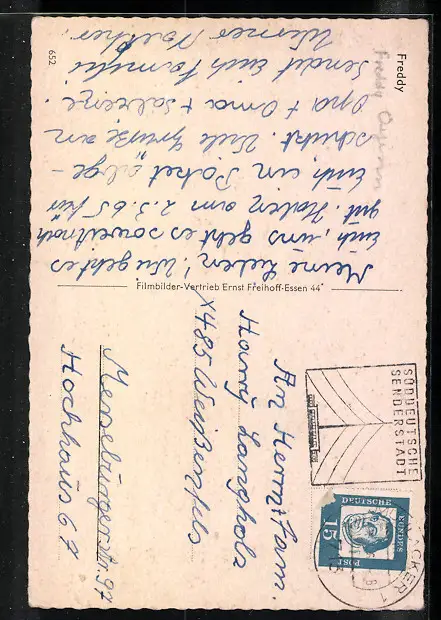 Freddy
Freddy Quinn
652
Meine Lieben! Wie geht es
Euch, uns geht es soweit noch
gut. Haben am 2.3.65 für
Euch ein Paket abge-
schickt. Viele Grüße an
Opa + Oma +
Sendet Euch Familie
Werner Walther.
Filmbilder-Vertrieb Ernst Freihoff-Essen 44
SÜDDEUTSCHE
SENDERSTADT
ACKER 1
DEUTSCHE
BUNDES
POST
15
An Herrn + Fam.
Harry Langholz
X485 Weißenfels
Merseburgerstr. 97
Hochhaus 67